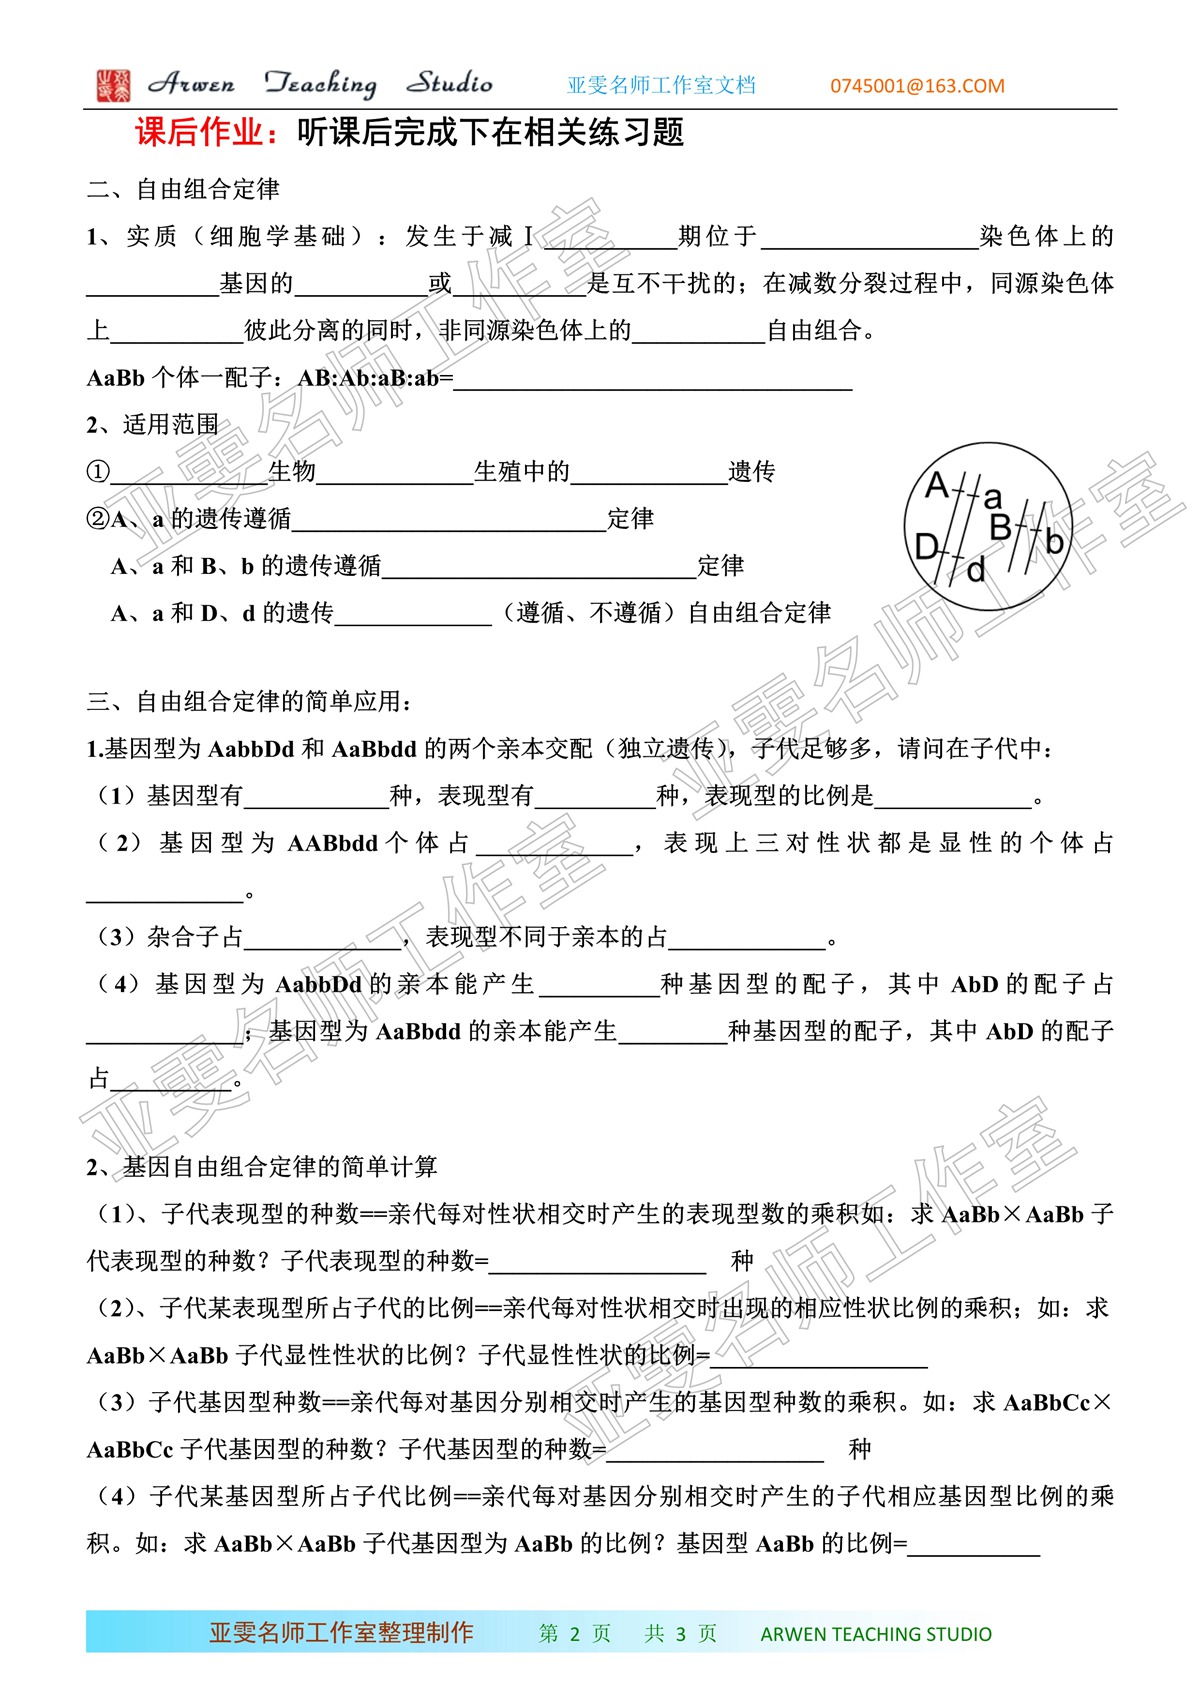 Arwen Teaching Studio 亚雯名师工作室文档 0745001@163.COM
课后作业：听课后完成下在相关练习题
二、自由组合定律
1、实质（细胞学基础）：发生于减Ⅰ___________期位于__________________染色体上的
___________基因的___________或___________是互不干扰的；在减数分裂过程中，同源染色体
上___________彼此分离的同时，非同源染色体上的___________自由组合。
AaBb 个体—配子：AB:Ab:aB:ab=_________________________________
2、适用范围
①_____________生物_____________生殖中的_____________遗传
②A、a 的遗传遵循__________________________定律
A、a 和 B、b 的遗传遵循__________________________定律
A、a 和 D、d 的遗传_____________（遵循、不遵循）自由组合定律
A a B b D d
三、自由组合定律的简单应用：
1.基因型为 AabbDd 和 AaBbdd 的两个亲本交配（独立遗传），子代足够多，请问在子代中：
（1）基因型有____________种，表现型有__________种，表现型的比例是_____________。
（2）基因型为 AABbdd 个体占_____________，表现上三对性状都是显性的个体占
_____________。
（3）杂合子占_____________，表现型不同于亲本的占_____________。
（4）基因型为 AabbDd 的亲本能产生__________种基因型的配子，其中 AbD 的配子占
_____________；基因型为 AaBbdd 的亲本能产生_________种基因型的配子，其中 AbD 的配子
占__________。
2、基因自由组合定律的简单计算
（1）、子代表现型的种数==亲代每对性状相交时产生的表现型数的乘积如：求 AaBb×AaBb 子
代表现型的种数？子代表现型的种数=__________________ 种
（2）、子代某表现型所占子代的比例==亲代每对性状相交时出现的相应性状比例的乘积；如：求
AaBb×AaBb 子代显性性状的比例？子代显性性状的比例=__________________
（3）子代基因型种数==亲代每对基因分别相交时产生的基因型种数的乘积。如：求 AaBbCc×
AaBbCc 子代基因型的种数？子代基因型的种数=__________________ 种
（4）子代某基因型所占子代比例==亲代每对基因分别相交时产生的子代相应基因型比例的乘
积。如：求 AaBb×AaBb 子代基因型为 AaBb 的比例？基因型 AaBb 的比例=___________
亚雯名师工作室整理制作 第 2 页 共 3 页 ARWEN TEACHING STUDIO
亚雯名师工作室
亚雯名师工作室
亚雯名师工作室
亚雯名师工作室